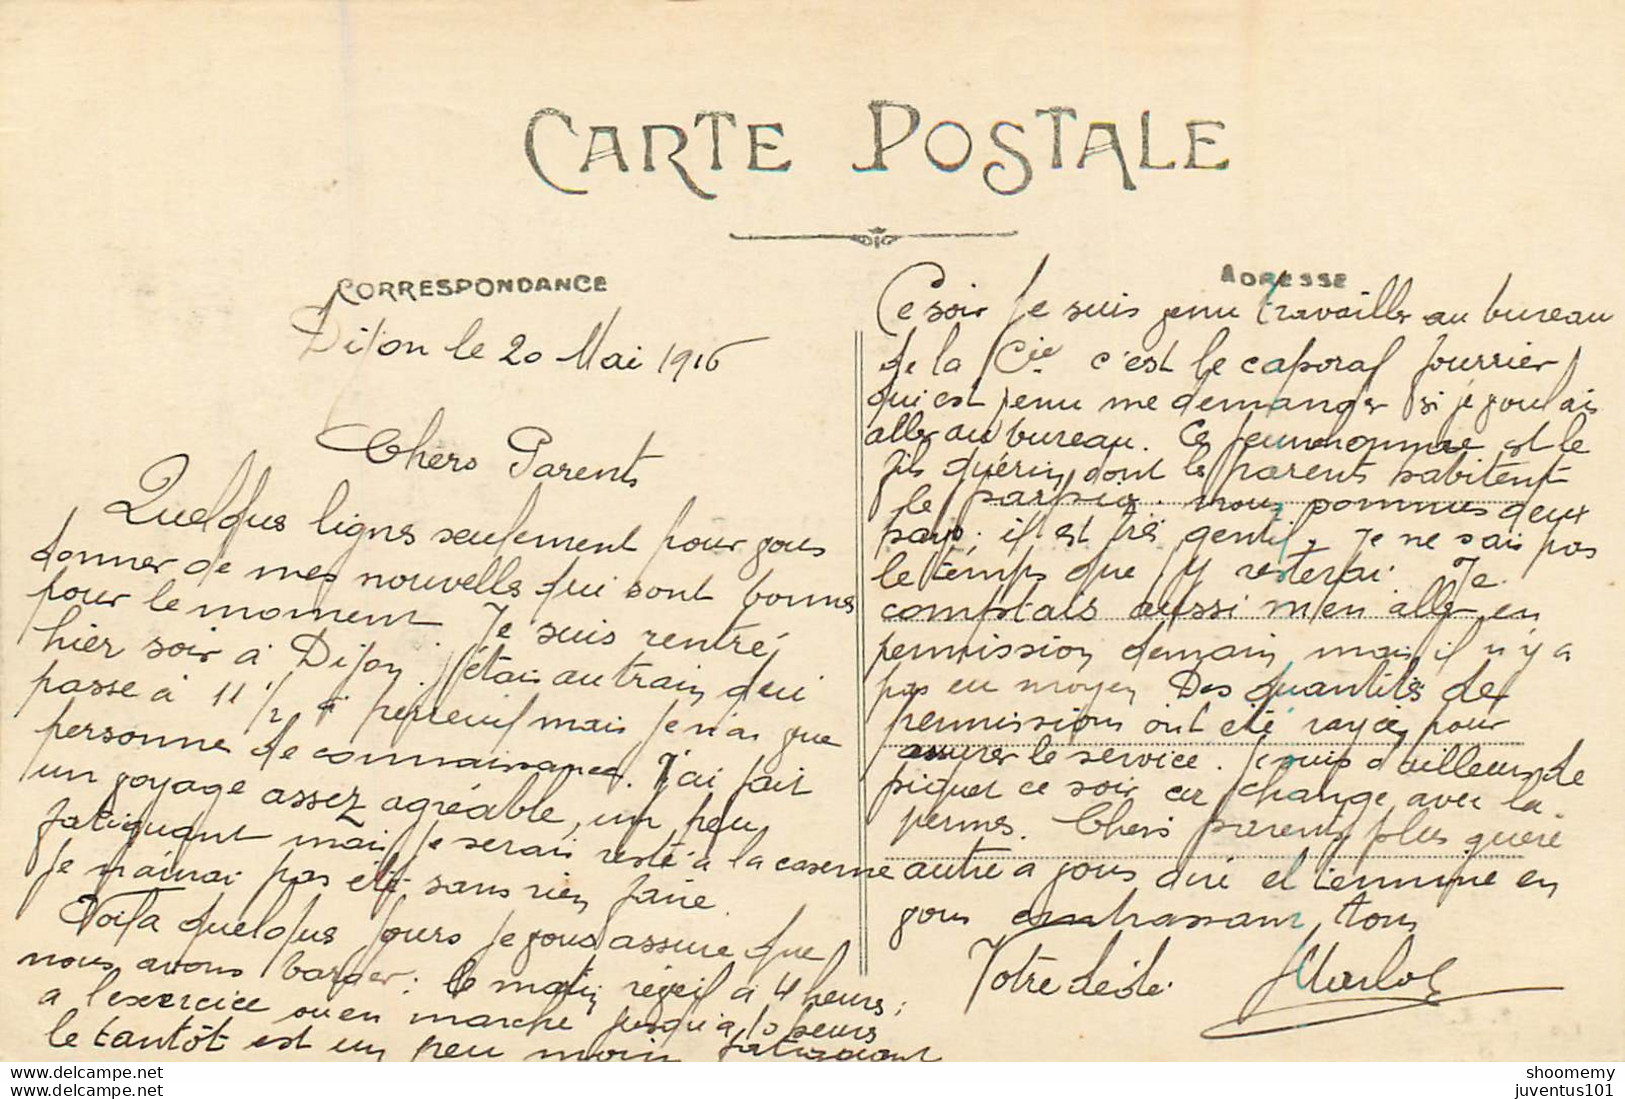 CARTE POSTALE
CORRESPONDANCE
Dijon le 20 Mai 1916
Chers Parents
Quelques lignes seulement pour vous
donner de mes nouvelles qui sont bonnes
pour le moment. Je suis rentré
hier soir à Dijon. j'étais au train qui
passe à 11 1/2 à perreuil mais je n'ai vue
personne de connaissance. J'ai fait
un voyage assez agréable, un peu
fatiguant mais je serais resté à la caserne
je n'aurai pas été sans rien faire.
Voilà quelques jours je vous assure que
nous avons barder: le matin réveil à 4 heurs;
a l'exercice ou en marche jusqu'a 10 heurs
le tantôt est un peu moin fatiguant
ADRESSE
Ce soir Je suis venu travailler au bureau
de la Cie c'est le caporal fourrier
qui est venu me demander si je voulais
aller au bureau. Ce jeune homme est le
fils Guérin dont les parents habitent
le nous sommes deux
pays. il est très gentil. Je ne sais pas
le temps que j'y resterai. Je
comptais aussi m'en aller en
permission demain mais il n'y a
pas eu moyen Des quantités de
permissions ont été rayées pour
assurer le service. Je suis d'ailleurs de
piquet ce soir car change avec la
perme. Chers parents plus guère
autre a vous dire et termine en
vous embrassant tous
Votre dédé.
shoomemy
juventus101